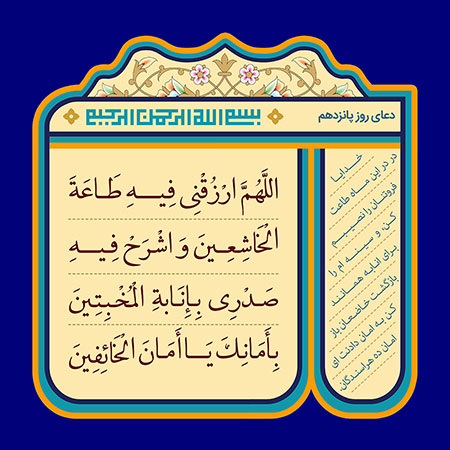 دعای روز پانزدهم
بسم الله الرحمن الرحیم
اللَّهُمَّ ارْزُقْنِی فِیهِ طَاعَةَ
الْخَاشِعِینَ وَ اشْرَحْ فِیهِ
صَدْرِی بِإِنَابَةِ الْمُخْبِتِینَ
بِأَمَانِكَ یَا أَمَانَ الْخَائِفِینَ
خدایا
در این ماه طاعت
فروتنان را نصیبم
کن، و سینه ام را
برای انابه همانند
بازگشت خاضعان باز
کن به امان دادنت ای
امان ده هراسندگان.